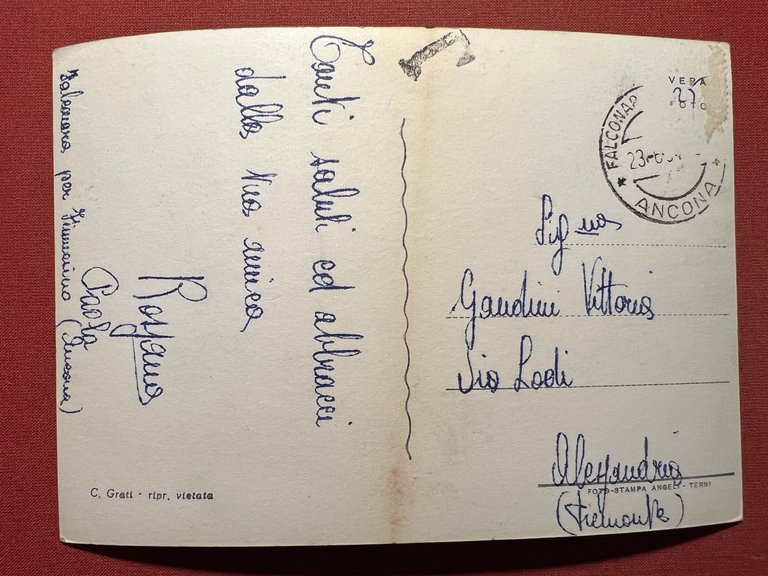 Tanti saluti ed abbracci
dalla tua amica
Rossana
Falconara per
Paola
(Ancona)
C. Grati - ripr. vietata
T
VERA
FOTO
FALCONAR
23-6-5
* ANCONA *
Sig.na
Gandini Vittoria
Via Lodi
Alessandria
FOTO-STAMPA ANGELI - TERNI
(Piemonte)